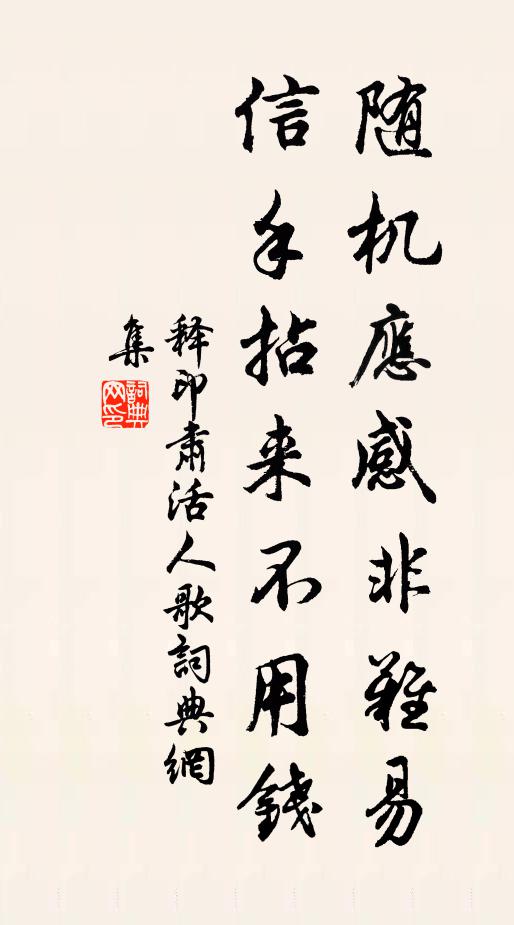 随机應感非難易
信手拈来不用錢
释印肃活人歌詞典網
集
詞典
网印